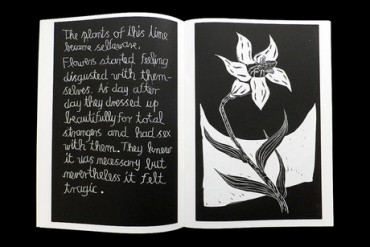 The plants of this time
became selfaware.
Flowers started feeling
disgusted with them-
selves. As day after
day they dressed up
beautifully for total
strangers and had sex
with them. They knew
it was necessary but
nevertheless it felt
tragic.